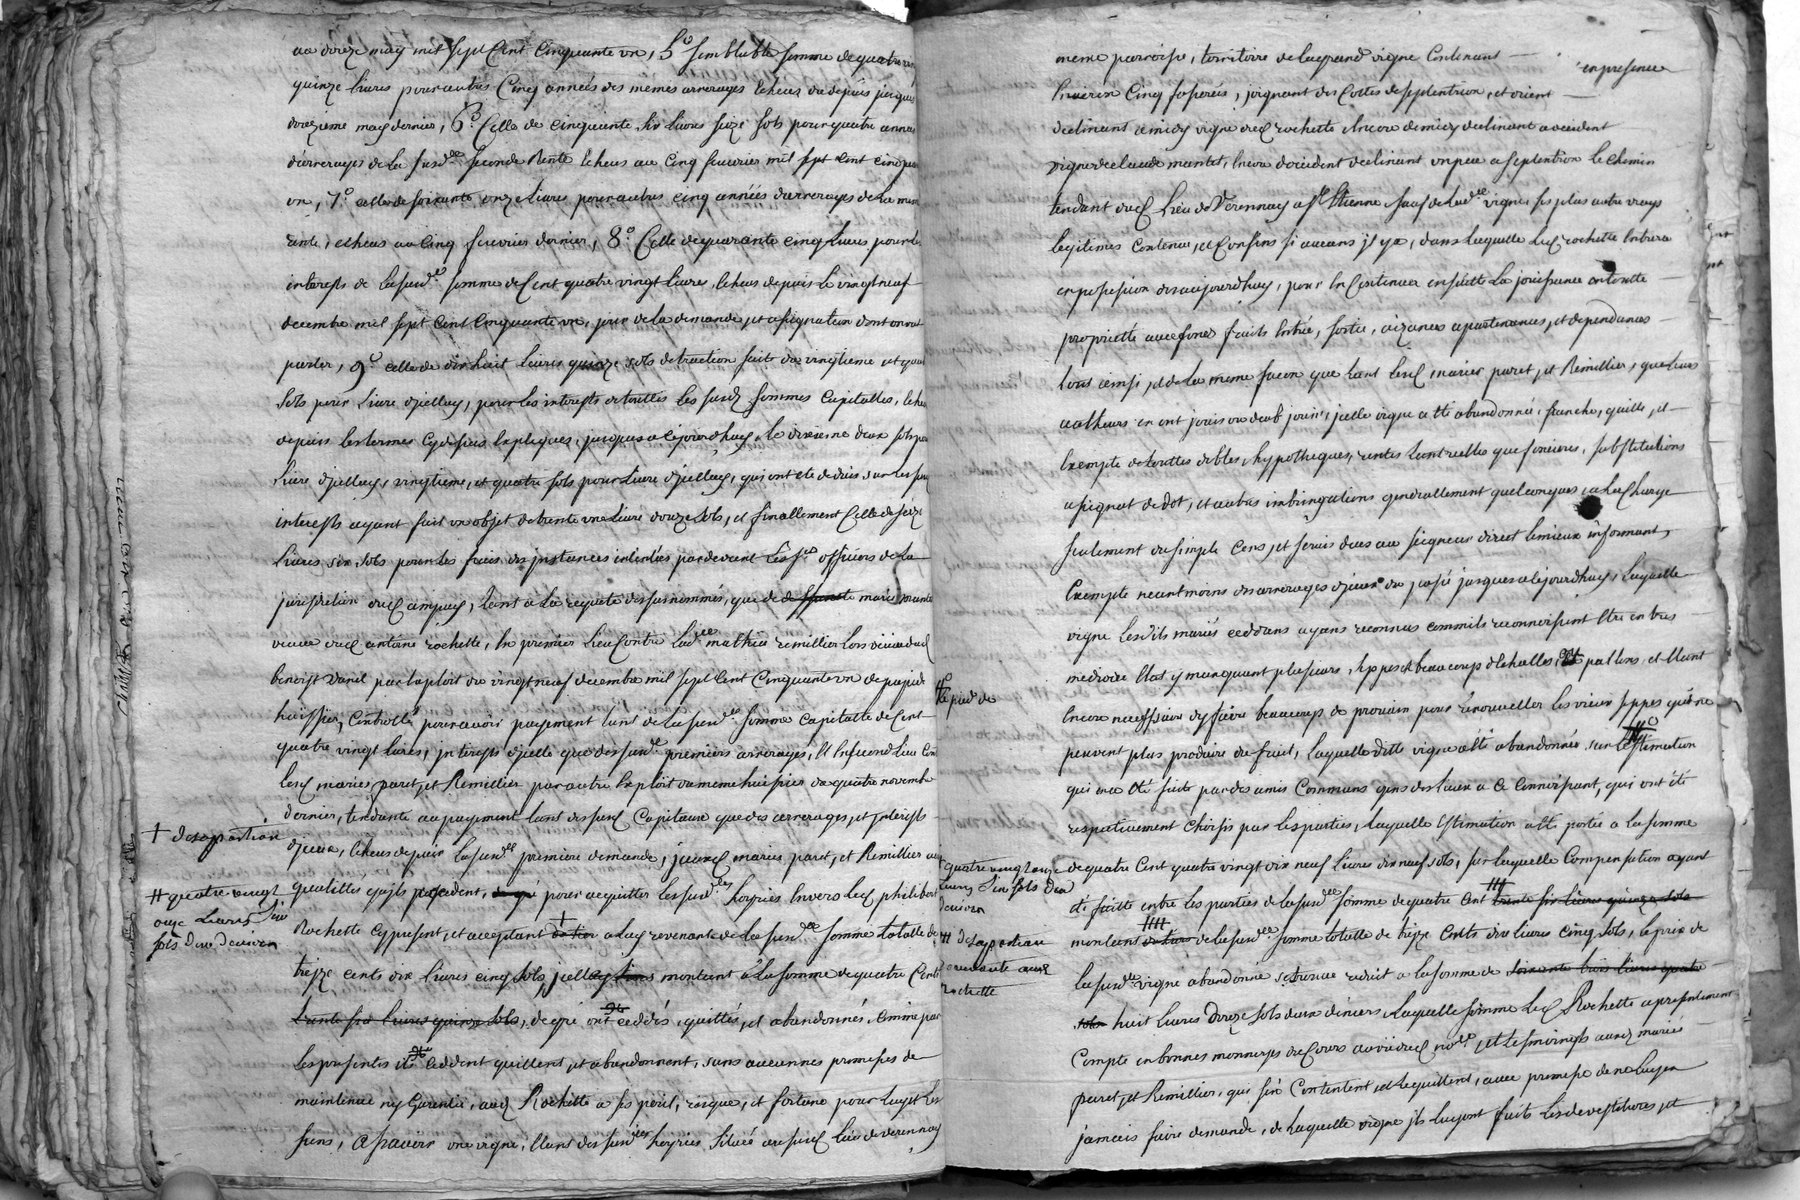 au douze may mil sept Cent Cinquante un, 5.° semblable somme de quatre vin
quinze livres pour autres Cinq années des memes arrerages echeus du depuis jusques
douzieme may dernier, 6.° Celle de cinquante six livres seize sols pour quatre anné
d'arrerages de la susd.e seconde Rente echeus au Cinq feuvrier mil sept cent cinquan
un, 7.° celle de soixante onze Livres pour autres cinq années d'arrerages de la mem
rente, echeus au Cinq feuvrier dernier, 8.° Celle de quarante cinq Livres pour les
interests de la susd.e somme de Cent quatre vingt livres, echeus depuis le vingt neuf
decembre mil sept cent Cinquante un, jour de la demande, et assignation dont on va
parler, 9.° celle de dix huit livres quinze sols detraction faite du vingtieme et quatre
sols pour Livre d'jcelluy, pour les interests de touttes les susd. sommes Capitalles, echeus
depuis les termes Cy dessus expliqués, jusques a ce jourd'huy, le dixieme deux sols pour
Livre d'jcelluy, vingtieme, et quatre sols pour Livre d'jcelluy, qui ont été deduis sur les susd
interests ayant fait un objet de trente une Livre douze sols, et finallement Celle de seize
Livres six sols pour les frais des jnstances intentées pardevant les s.rs officiers de la
jurisdiction dud. ampuy, tant a la requete des susnommés, que de deffunte marie
veuve dud. antoine rochette, en premier lieu Contre lad.e mathie remillier lors veuve dud.
benoist paret par exploit du vingt neuf decembre mil sept Cent Cinquante un de
huissier, Controllé pour avoir payement tant de la susd.e somme capitalle de Cent
quatre vingt livres, jnterests d'jcelle que des susd.s premiers arrerages, et en second lieu Con
lesd. mariés paret, et Remillier par autre Exploit du meme huissier du quatre novembre
dernier, tendante au payement tant des susd. Capitaux que des arrerages, et jnterests
+ desa portion
d'jceux, echeus depuis la susd.e premiere demande, jceux mariés paret, et Remillier aux
# quatre vingt onze Livres six sols deux deniers
qualittés qu'ils procedent, de gré pour acquitter les susd.s hoyries Envers led. philibert
Rochette Cy present, et acceptant de tier a luy revenante de la susd.e somme totalle de
treize cents dix livres cinq sols, jcelluy tiers montant a la somme de quatre Cents
trente six livres quinze sols, de gré ont ceddés, quittés, et abandonnés, comme par
les presentes ils Ceddent quittent, et abandonnent, sans aucunnes promesses de
maintenue ny Garentie, aud. Rochette a ses peril, risque, et fortune pour luy et les
siens, a sçavoir une vigne, Etant des susd.es hoyries, scituée au susd. lieu de verennay
meme parroisse, territoire de la grand vigne Contenant
en presence
Environ Cinq fosserées, joignant des Cottés de septentrion, et orient
declinant a midy vigne dud. rochette Encore de midy declinant a occident
vigne de claude mantet, Encore d'occident declinant un peu a septentrion le chemin
tendant dud. lieu de Verennay a S.t Etienne sauf de lad.e vigne ses plus autre vrays
legitimes contenue, et Confins si aucuns jl y a, dans laquelle led. rochette Entrera
en possession des aujourd'huy, pour En Continuer ensuitte la jouissance en toutte
proprietté avec fonds fruits Entrée, sortie, aizances apartenances, et dependances
tout ainsi, et de la meme façon que tant lesd. mariés paret, et Remillier, que leurs
autheurs en ont jouis ou deub jouir, jcelle vigne a été abandonnée, franche, quitte, et
Exempte de touttes debtes, hypotheques, rentes tant reelles que foncieres, substitutions
assignat de dot, et autres imbringations generallement quelconques, a la Charge
seulement du simple Cens, et servis deus au seigneur direct le mieux informant,
Exempte neantmoins des arrerages d'jceux du passé jusques a ce jourd'huy, laquelle
vigne lesdits mariés ceddans ayans reconnus comme ils reconnoissent Etre en tres
# le pied de
mediocre Etat y manquant plusieurs seppes et beaucoup d'echallas, et pallins, et etant
Encore necessaire d'y faire beaucoup de provain pour renouveller les vieux seppes qui ne
peuvent plus produire du fruit, laquelle ditte vigne a été abandonnée sur l'estimation
qui en a été faite par des amis Communs gens des lieux a ce Connoissant, qui ont été
respectivement choisis par les parties, laquelle Estimation a été portée a la somme
quatre vingt onze Livres six sols deux deniers
de quatre Cent quatre vingt dix neuf livres dix neuf sols, sur laquelle Compensation ayant
été faitte entre les parties de la susd.e somme de quatre Cent trente six livres quinze sols
# de sa portion revenante aud. rochette
montant du tiers de la susd.e somme totalle de treize Cents dix livres cinq sols, le prix de
la susd.e vigne abandonnée se trouve reduit a la somme de soixante trois livres quatre
sols huit livres Douze sols deux deniers, laquelle somme led. Rochette a presentement
Compté en bonnes monnoyes du Cours au vû dud. no.re, et tesmoings auxd. mariés
paret, et Remillier, qui s'en Contentent, et le quittent, avec promesse de ne luy en
jamais faire demande, de laquelle vigne jls luy ont faits les devestitures, et